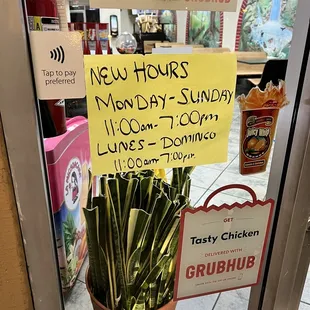 GRUBHUB
Tap to pay
preferred
NEW HOURS
MONDAY-SUNDAY
11:00am-7:00pm
LUNES-DOMINGO
11:00am-7:00pm
GET
Tasty Chicken
DELIVERED WITH
GRUBHUB